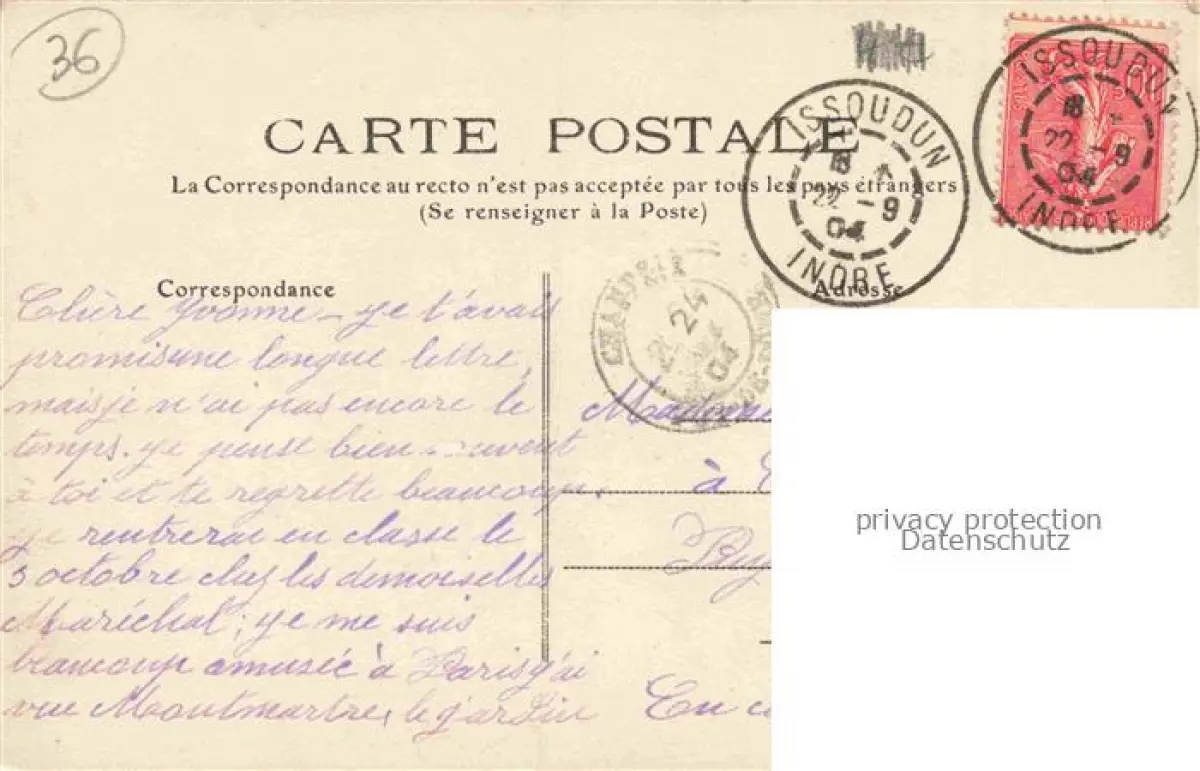 36
CARTE POSTALE
La Correspondance au recto n'est pas acceptée par tous les pays étrangers
(Se renseigner à la Poste)
ISSOUDUN
22 -9
04
INDRE
ISSOUDUN
22 -9
04
INDRE
24
04
Correspondance
Adresse
Chère Yvonne – je t'avais
promis une longue lettre,
mais je n'ai pas encore le
temps. je pense bien souvent
à toi et te regrette beaucoup.
je rentrerai en classe le
3 octobre chez les demoiselles
Maréchal; je me suis
beaucoup amusée à Paris j'ai
vue Montmartre, le jardin
à
En
privacy protection
Datenschutz